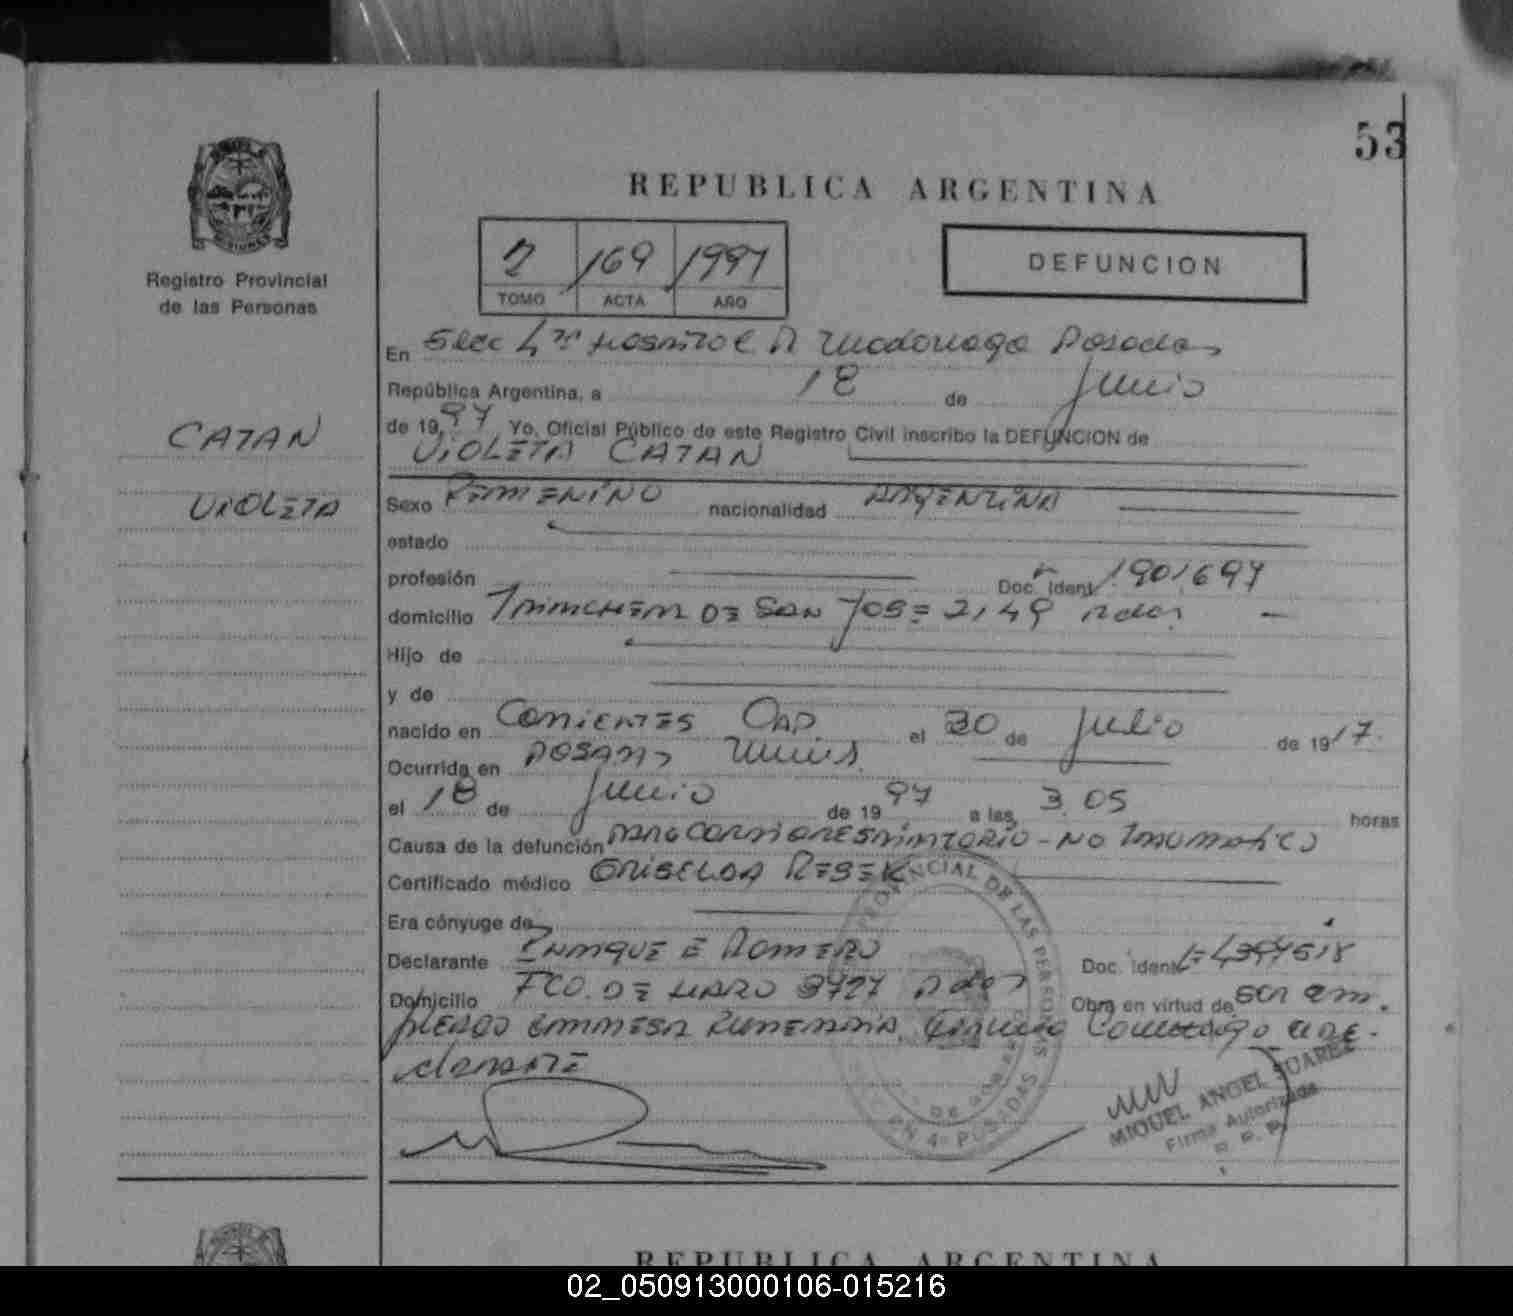 53
REPUBLICA ARGENTINA
2 169 1997
TOMO ACTA AÑO
DEFUNCION
MISIONES
Registro Provincial
de las Personas
CATAN
VIOLETA
En Secc 4ta Hospital R Madariaga Posadas
República Argentina, a 18 de Junio
de 1997 Yo, Oficial Público de este Registro Civil inscribo la DEFUNCION de
VIOLETA CATAN
Sexo FEMENINO nacionalidad ARGENTINA
estado
profesión Doc. Ident. 1.901.697
domicilio TRINCHERA DE SAN JOSE 2149 Pdas
Hijo de
y de
nacido en Corrientes Cap. el 30 de Julio de 1917.
Ocurrida en POSADAS
el 18 de Junio de 1997 a las 3.05 horas
Causa de la defunción PAROCARDIORESPIRATORIO - NO TRAUMATICO
Certificado médico GRISELDA RESEK
Era cónyuge de
Declarante ENRIQUE E ROMERO Doc. Ident.
Domicilio FCO. DE HARO 3727 Pdas Obra en virtud de ser em.
pleado EMPRESA FUNERARIA, conmigo el de-
clarante
PROVINCIAL DE LAS PERSONAS
4ª POSADAS
MIGUEL ANGEL SUAREZ
Firma Autorizada
R. P. P.
REPUBLICA ARGENTINA
02_050913000106-015216